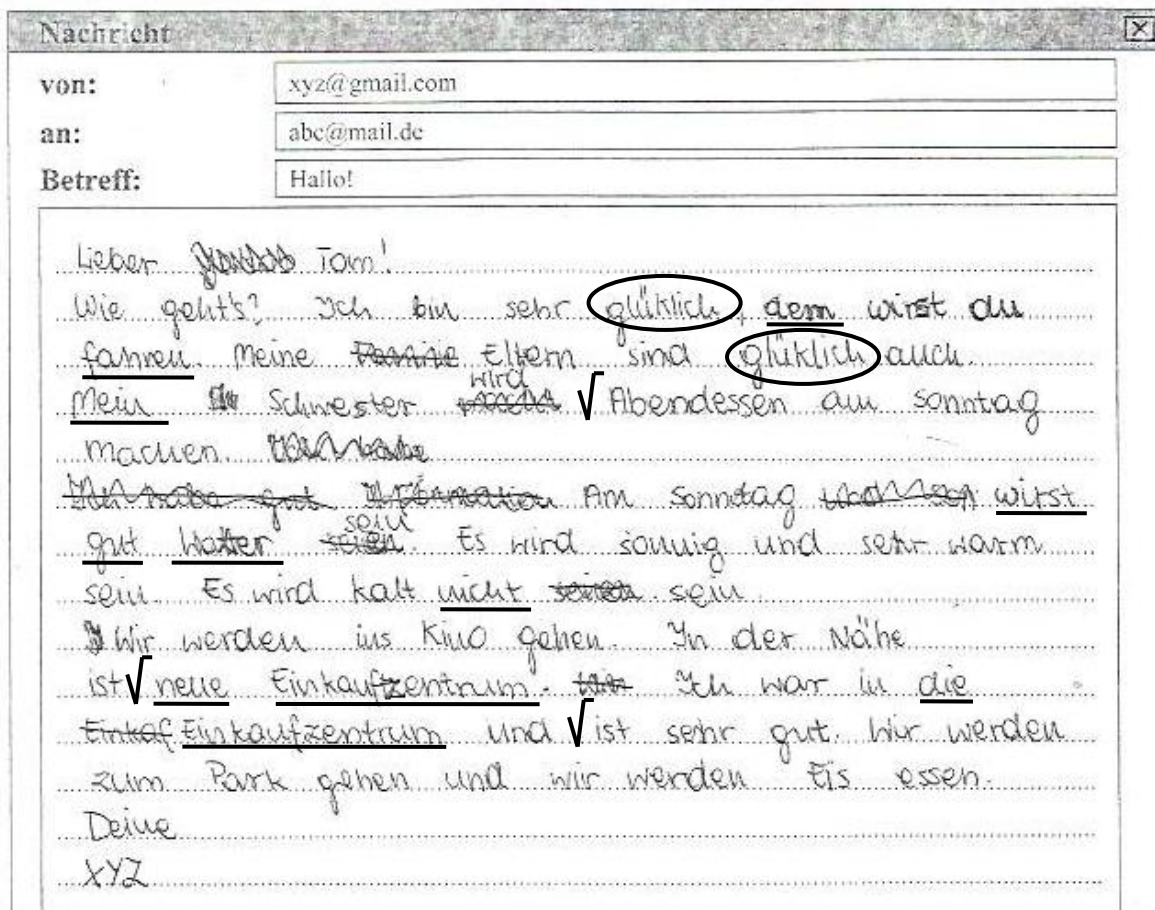 Nachricht
von: xyz@gmail.com
an: abc@mail.de
Betreff: Hallo!
Lieber Tom!
Wie geht's? Ich bin sehr glüklich, dem wirst du
fahren. Meine Eltern sind glüklich auch.
Mein Schwester wird √ Abendessen am Sonntag
machen.
Ich habe gut Information Am Sonntag wirst
gut Watter sein. Es wird sonnig und sehr warm
sein. Es wird kalt nicht sein.
Wir werden ins Kino gehen. In der Nähe
ist √ neue Einkaufzentrum. Ich war in die
Einkaf Einkaufzentrum und √ ist sehr gut. Wir werden
zum Park gehen und wir werden Eis essen.
Deine
XYZ